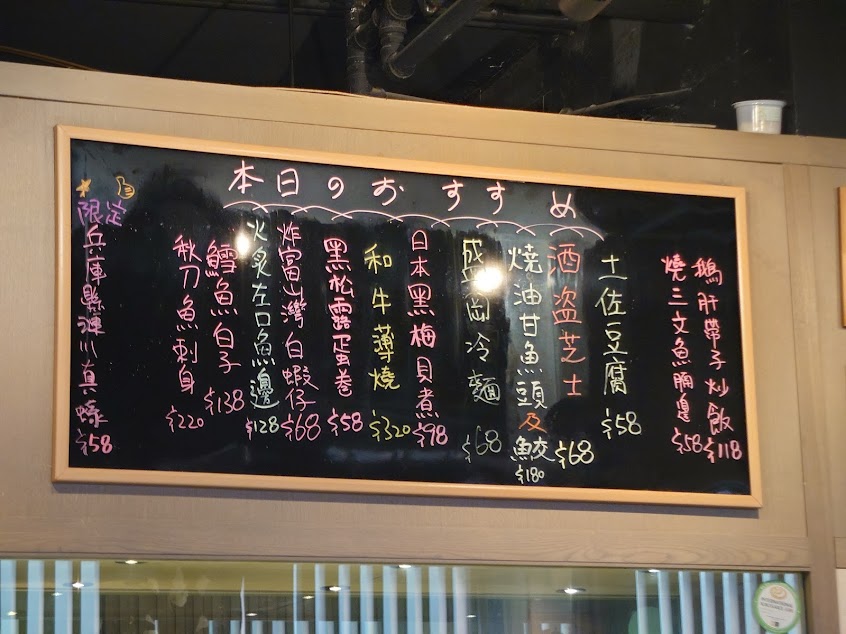 本日のおすすめ
鵝肝帶子炒飯 $118
燒三文魚腩邊 $58
土佐豆腐 $58
酒盗芝士 $68
燒油甘魚頭及鮫 $180
盛岡冷麵 $68
日本黑梅貝煮 $98
和牛薄燒 $320
黑松露蛋卷 $58
炸富山灣白蝦仔 $68
火炙左口魚邊 $128
鱈魚白子 $138
秋刀魚刺身 $220
限定
兵庫縣 真蠔 $58